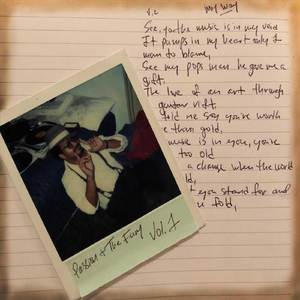 v.2
my way
See, you the music is in my veins
It pumps in my heart only 1
man to blame,
See my pops man he gave me a
gift,
The love of an art through
guitar riff
told me say you're worth
e than gold,
music is in you, you're
too old
a change when the world
ld,
t you stand for and
u fold,
Passion + The Fury
Vol. 1